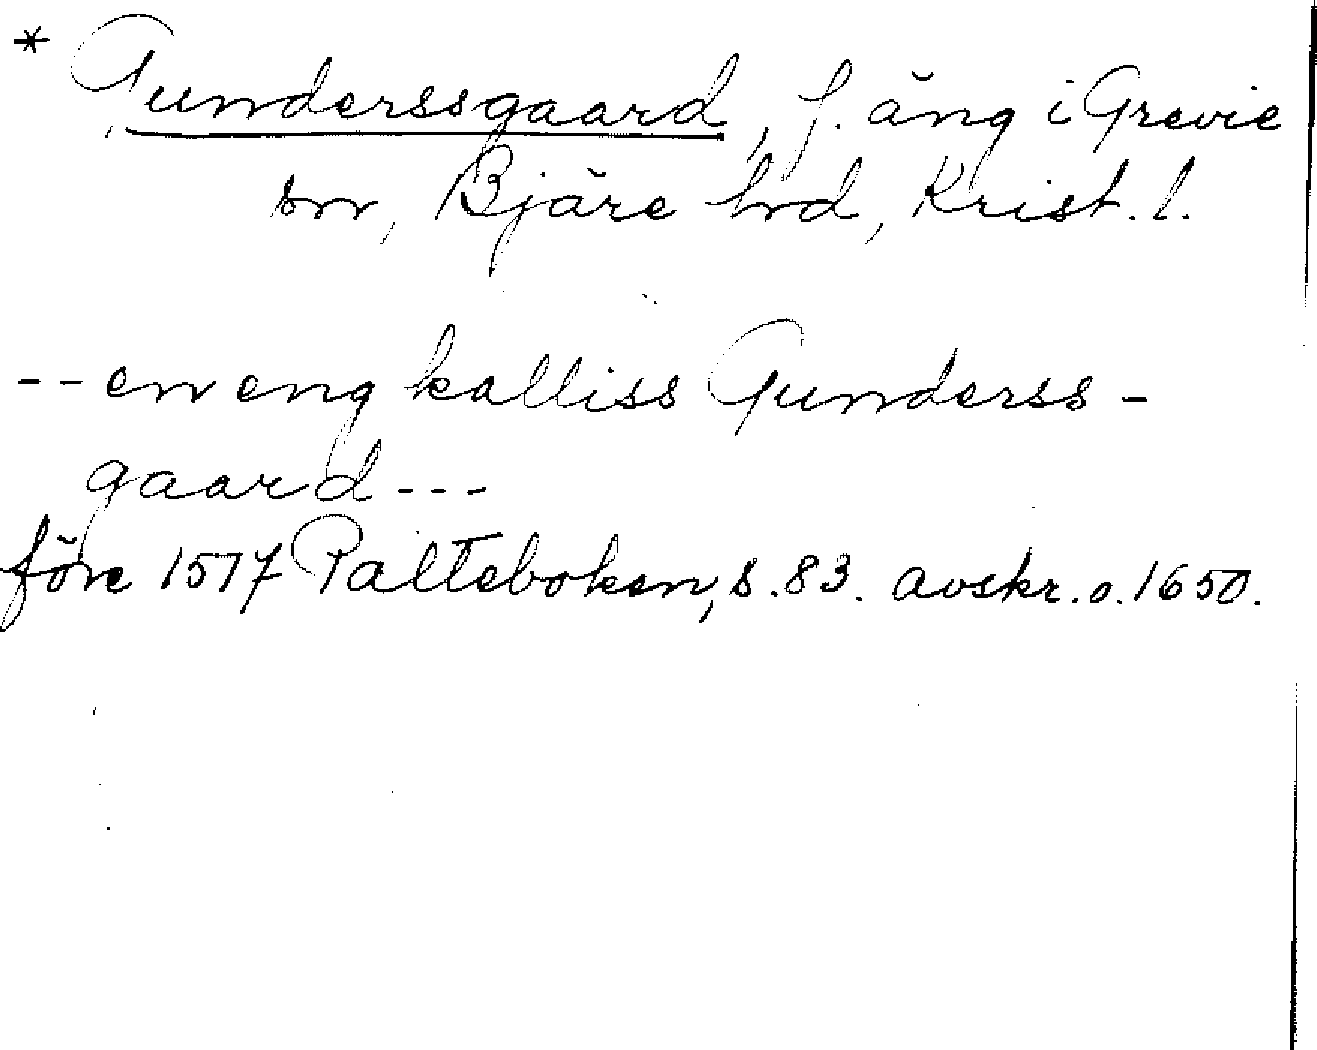 * Gunderssgaard, f. äng i Grevie
sn, Bjäre hd, Krist. l.
-- en eng kalliss Gunderss-
gaard ---
före 1577 Palteboken, s. 83. avskr. o. 1650.